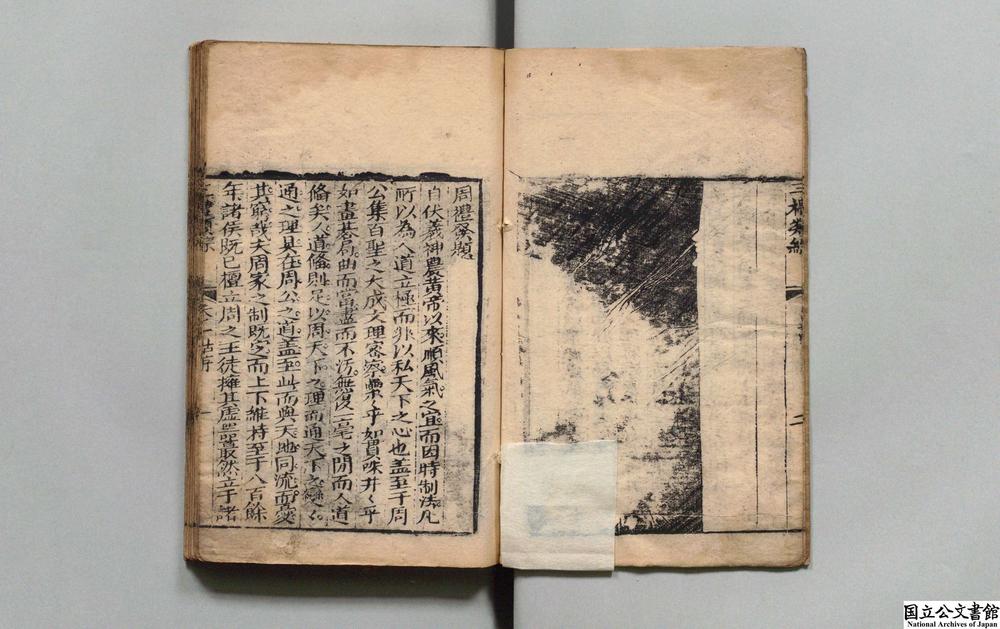 三
二
周禮發題
自伏羲神農黃帝以來順風氣之宜而因時制法凡
所以為人道立極而非以私天下之心也盖至于周
公集百聖之大成文理密察纍〻乎如貫珠井〻乎
如畫棊局曲而當盡而不汚無復一毫之間而人道
備矣人道備則足以周天下之理而通天下之變〻
通之理具在周公之道盖至此而與天地同流而憂
其窮哉夫周家之制既定而上下維持至于八百餘
年諸侯既已擅立周之王徒擁其虛器蕞然立于諸
国立公文書館
National Archives of Japan